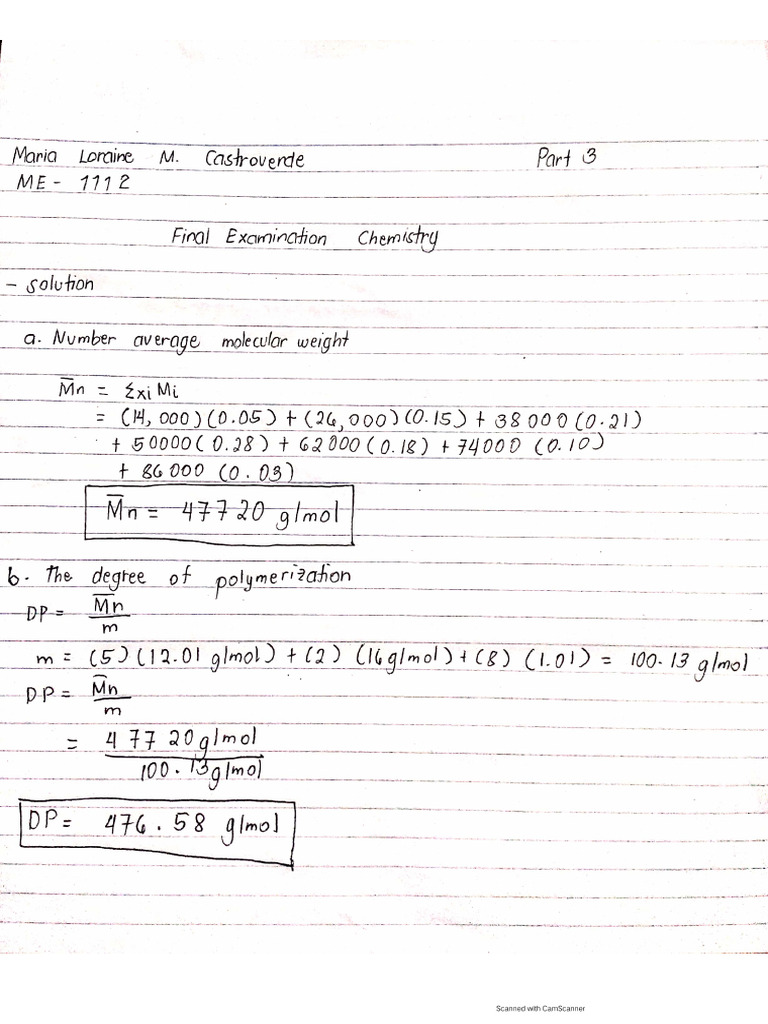 Maria Loraine M. Castroverde Part 3
ME - 1112
Final Examination Chemistry
- solution
a. Number average molecular weight
M̅n = Σxi Mi
= (14,000)(0.05) + (26,000)(0.15) + 38000(0.21)
+ 50000(0.28) + 62000(0.18) + 74000 (0.10)
+ 86000 (0.03)
M̅n = 47720 g/mol
b. The degree of polymerization
DP = M̅n
m
m = (5)(12.01 g/mol) + (2) (16 g/mol) + (8) (1.01) = 100.13 g/mol
DP = M̅n
m
= 47720 g/mol
100.13 g/mol
DP = 476.58 g/mol
Scanned with CamScanner